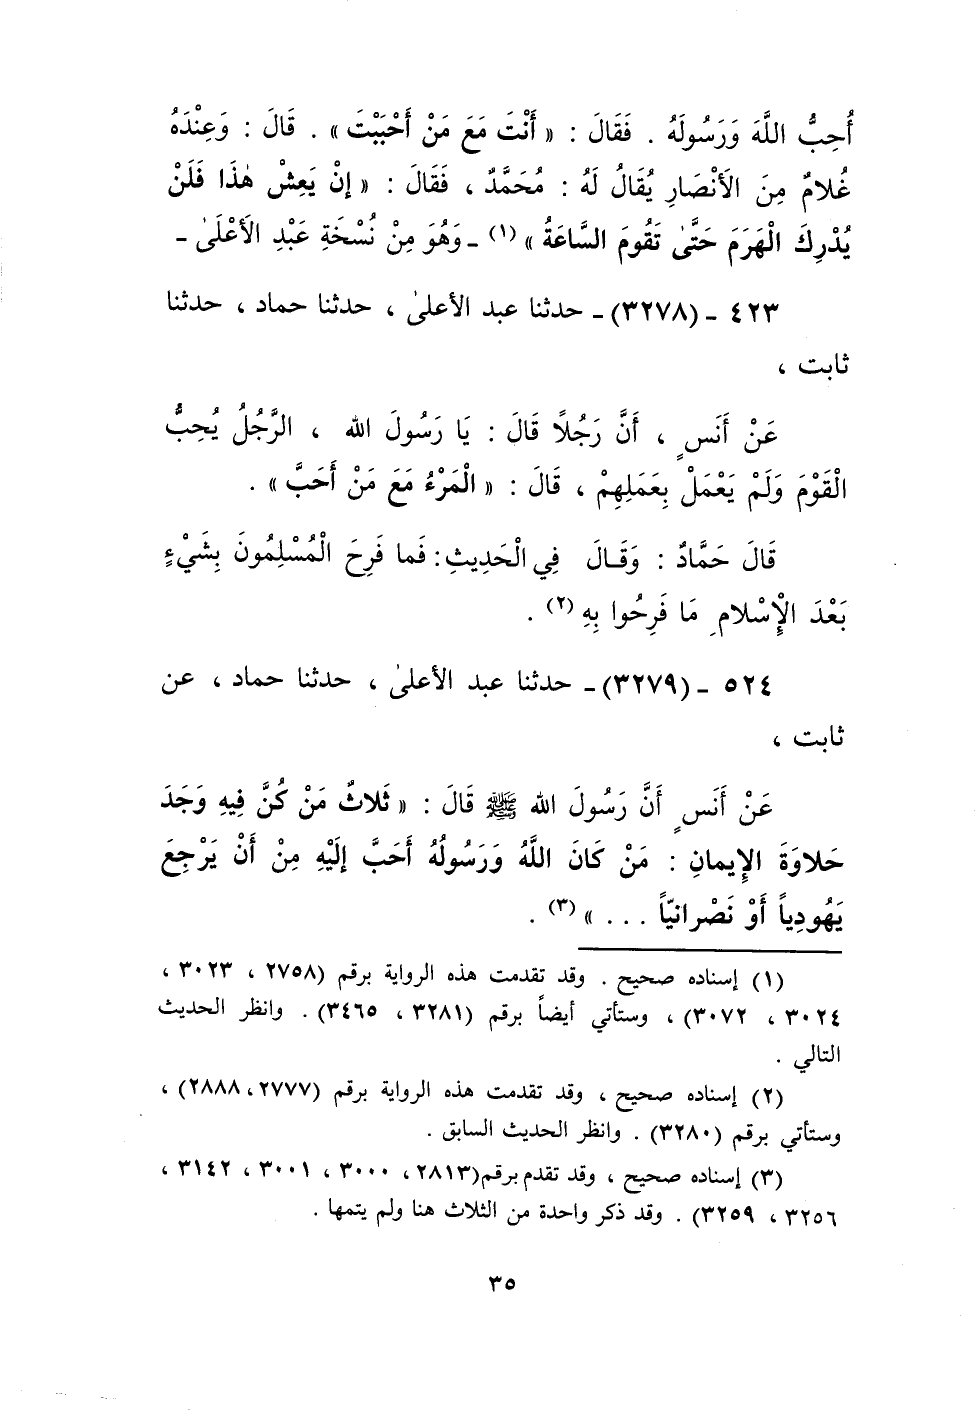 أُحِبُّ اللَّهَ وَرَسُولَهُ . فَقَالَ : « أَنْتَ مَعَ مَنْ أَحْبَبْتَ » . قَالَ : وَعِنْدَهُ
غُلامٌ مِنَ الأَنْصَارِ يُقَالُ لَهُ : مُحَمَّدٌ ، فَقَالَ : « إنْ يَعِشْ هٰذَا فَلَنْ
يُدْرِكَ الْهَرَمَ حَتَّىٰ تَقُومَ السَّاعَةُ » (١) ـ وَهُوَ مِنْ نُسْخَةِ عَبْدِ الأَعْلَىٰ ـ
٤٢٣ ـ (٣٢٧٨) ـ حدثنا عبد الأعلىٰ ، حدثنا حماد ، حدثنا
ثابت ،
عَنْ أَنَسٍ ، أَنَّ رَجُلاً قَالَ : يَا رَسُولَ الله ، الرَّجُلُ يُحِبُّ
الْقَوْمَ وَلَمْ يَعْمَلْ بِعَمَلِهِمْ ، قَالَ : « الْمَرْءُ مَعَ مَنْ أَحَبَّ » .
قَالَ حَمَّادٌ : وَقَـالَ فِي الْحَدِيثِ : فَما فَرِحَ الْمُسْلِمُونَ بِشَيْءٍ
بَعْدَ الْإِسْلامِ مَا فَرِحُوا بِهِ (٢) .
٥٢٤ ـ (٣٢٧٩) ـ حدثنا عبد الأعلىٰ ، حدثنا حماد ، عن
ثابت ،
عَنْ أَنَسٍ أَنَّ رَسُولَ الله ﷺ قَالَ : « ثَلاثٌ مَنْ كُنَّ فِيهِ وَجَدَ
حَلاوَةَ الإِيمانِ : مَنْ كَانَ اللَّهُ وَرَسُولُهُ أَحَبَّ إلَيْهِ مِنْ أَنْ يَرْجِعَ
يَهُودِياً أَوْ نَصْرانيّاً . . . » (٣) .
(١) إسناده صحيح . وقد تقدمت هذه الرواية برقم (٢٧٥٨ ، ٣٠٢٣ ،
٣٠٢٤ ، ٣٠٧٢) ، وستأتي أيضاً برقم (٣٢٨١ ، ٣٤٦٥) . وانظر الحديث
التالي .
(٢) إسناده صحيح ، وقد تقدمت هذه الرواية برقم (٢٧٧٧ ، ٢٨٨٨) ،
وستأتي برقم (٣٢٨٠) . وانظر الحديث السابق .
(٣) إسناده صحيح ، وقد تقدم برقم (٢٨١٣ ، ٣٠٠٠ ، ٣٠٠١ ، ٣١٤٢ ،
٣٢٥٦ ، ٣٢٥٩) . وقد ذكر واحدة من الثلاث هنا ولم يتمها .
٣٥